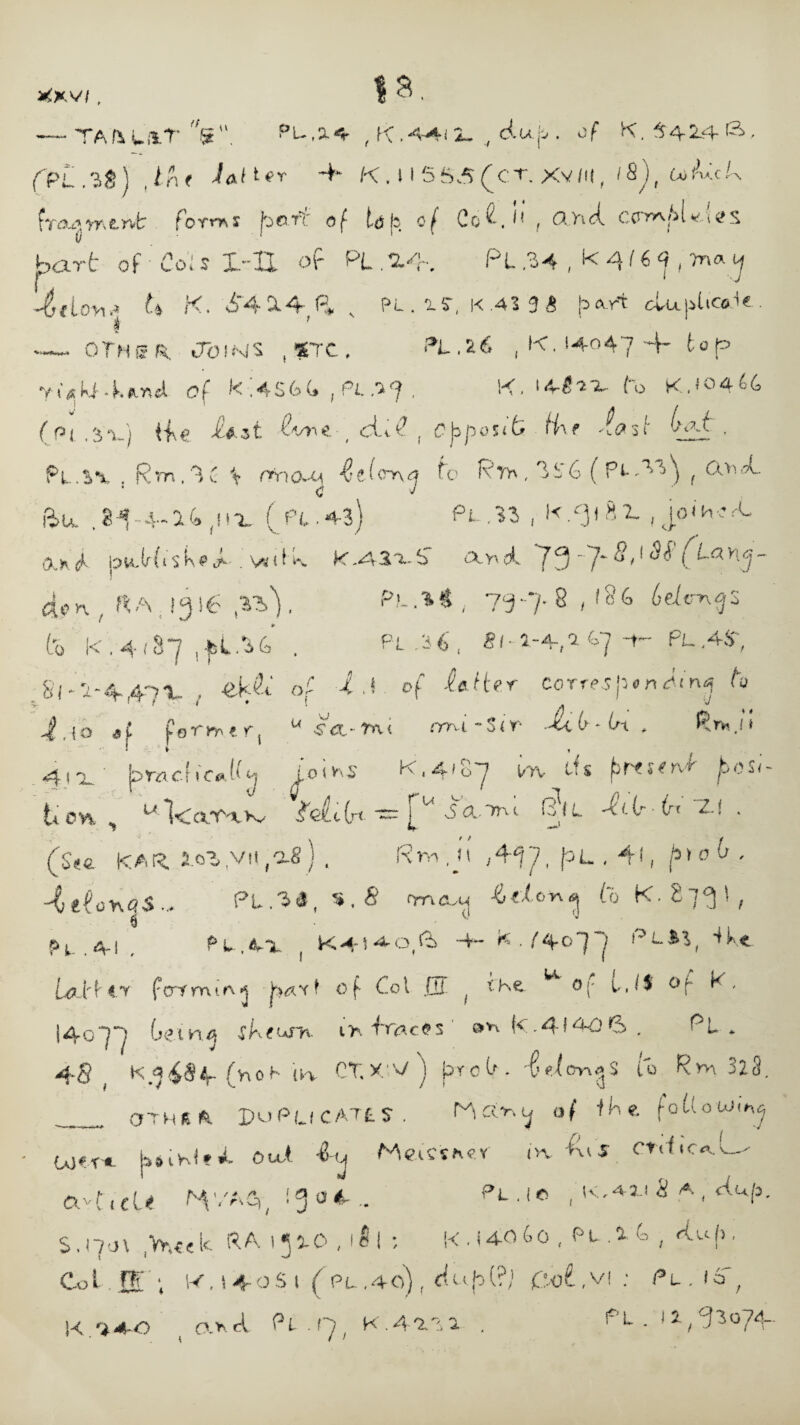 xxvi, 18.
— TABLET "E". PL.24, K.4412, dup. of K.5424B,
(PL.38), the latter + K.11585 (CT. XVIII, 18), which
fragment forms part of top of Col. II, and completes
part of Cols I-II of PL.24. PL.34, K 4169, may
belong to K. 5424,B, PL. 25, K.4398 part duplicate.
— OTHER JOINS, ETC. PL.26, K.14047 + top
right-hand of K.4566, PL.29. K.14822 to K.10466
(Pl.32) the last line, did, opposite the last bat.
PL.32, Rm.3C & may belong to Rm, 356 (PL.33), and
Bu. 89-4-26,112 (PL.43) PL.33, K.9182, joined
and published, with K.4325 and 79-7-8,188 (Lang-
don, RA, 1916, 33). PL.38, 79-7-8, 186 belongs
to K.4187, PL.36. PL.36, 81-2-4,267 + PL.45,
81-2-4,472, ekli of l.1 of latter corresponding to
l.10 of former, "sa-mi mi-sir lib-bi. Rm.11
412 practically joins K.4187 in its present posi-
tion, "karax libbi = [" sa-mi BIL lib-bi ZI.
(See KAR 203,VII,28). Rm.11,497, PL.41, prob.
belongs .. PL.38, 5,8 may belong to K.8791,
PL.41, PL.42, K4140,B + K.14077 PL33, the
latter forming part of Col III, the of l.15 of K.
14077 being shewn in traces on K.4140B. PL.
48, K.9684 (not in CT.XIV) prob. belongs to Rm 328.
— OTHER DUPLICATES. Many of the following
were pointed out by Meissner in his critical
article MVAG, 1904.. PL.10, K.4218A, dup.
S.1701, Meek RA 1920, 181; K.14060, PL.26, dup.
Col. III; K.14051 (PL.40), dup(?) Col.VI: PL.15,
K.240, and PL.17, K.4232. PL.12, 93074